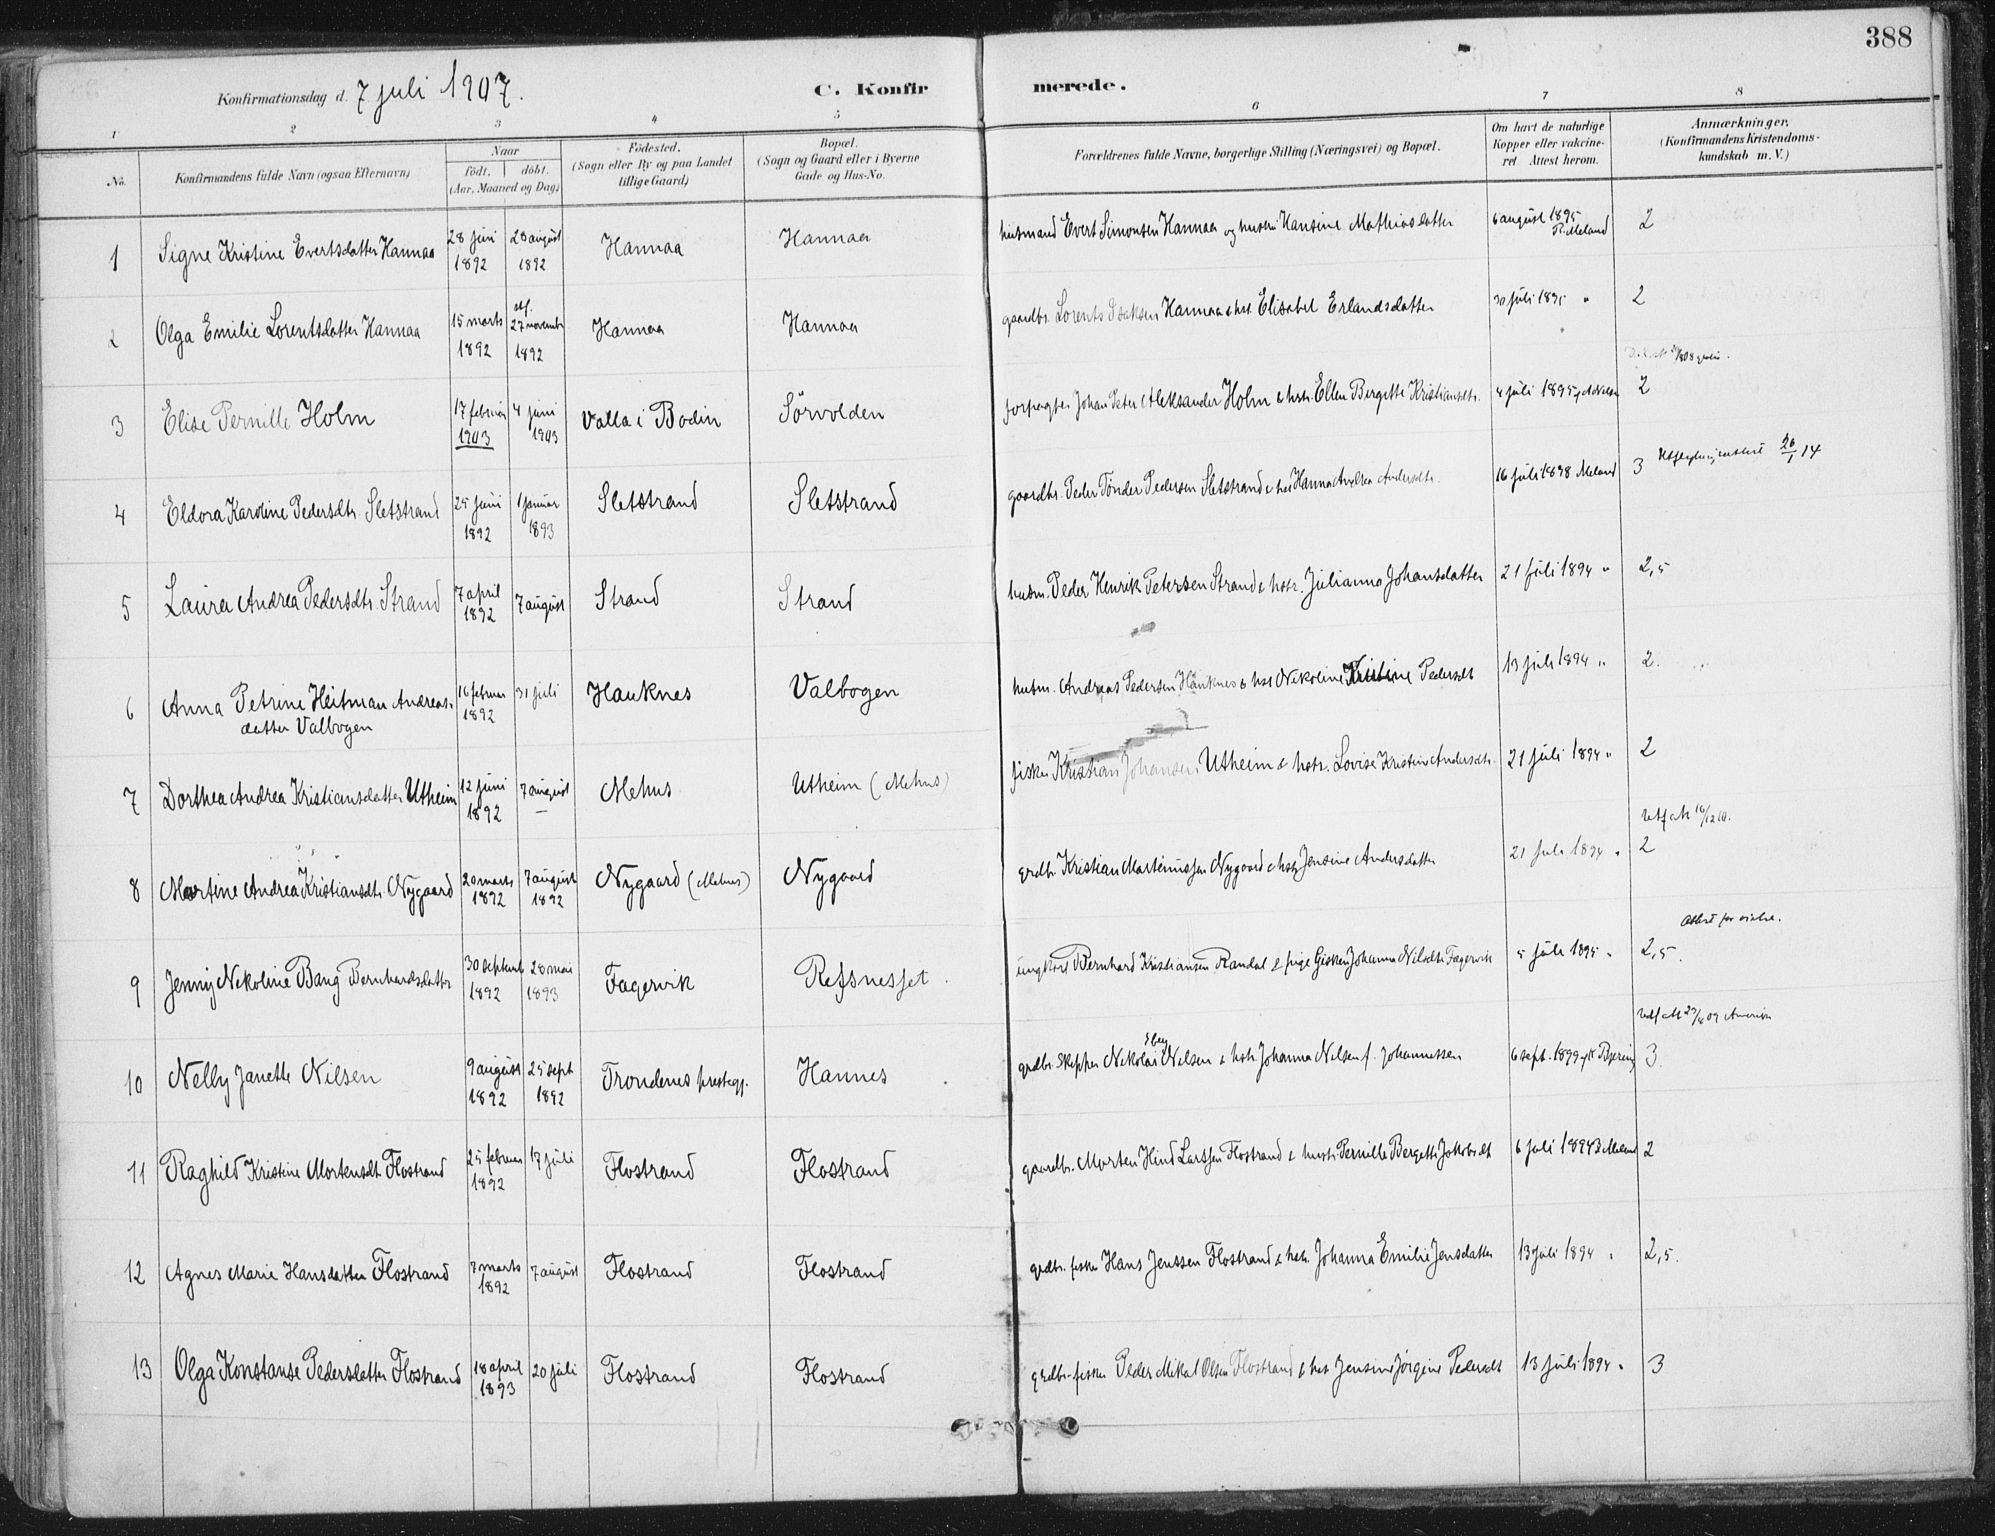 388
Konfirmationsdag d. 7 juli 1907.
C. Konfirmerede.
1 2 3 4 5 6 7 8
No.
Konfirmandens fulde Navn (ogsaa Efternavn)
Naar
födt. döbt.
(Aar, Maaned og Dag)
Födested.
(Sogn eller By og paa Landet
tillige Gaard)
Bopæl.
(Sogn og Gaard eller i Byerne
Gade og Hus-No.
Forældrenes fulde Navne, borgerlige Stilling (Næringsvei) og Bopæl.
Om havt de naturlige
Kopper eller vakcine-
ret. Attest herom.
Anmærkninger.
(Konfirmandens Kristendoms-
kundskab m. V.)
1 Signe Kristine Evertsdatter Hannaa 28 juni 1892 28 august 1892 Hannaa Hannaa husmand Evert Simonsen Hannaa og hustru Hansine Mathiasdatter 6 august 1895 P. Meland 2
2 Olga Emilie Lorentsdatter Hannaa 15 marts 1892 27 novembr 1892 Hannaa Hannaa gaardbr. Lorents Isaksen Hannaa & hst. Elisabet Erlandsdatter 30 juli 1895 " 2
3 Elise Pernille Holm 17 februar 1903 4 juni 1903 Valla i Bodin Sörvolden forpagter Johan Peter Aleksander Holm & hstr. Ellen Bergette Kristiansdtr. 4 juli 1895 2
4 Eldora Karoline Pedersdtr. Sletstrand 25 juni 1892 1 januar 1893 Sletstrand Sletstrand gaardbr. Peder Tönder Pedersen Sletstrand & hst Hanna Andrea Andersdtr. 16 juli 1898 Meland 3 26/1 14
5 Laura Andrea Pedersdtr. Strand 7 april 1892 7 august Strand Strand husm. Peder Henrik Petersen Strand & hstr. Julianna Johansdatter 21 juli 1894 " 2,5
6 Anna Petrine Heitman Andreas-
datter Valbogen 16 februar 1892 31 juli Hauknes Valbogen husm. Andreas Pedersen Hauknes & hst Nekoline Kristine Pedersdt 13 juli 1894 " 2.
7 Dorthea Andrea Kristiansdatter Utheim 12 juni 1892 7 august — Mehus Utheim (Mehus) fisker Kristian Johansen Utheim & hstr. Lovise Kristine Andersdtr. 21 juli 1894 " 2
8 Martine Andrea Kristiansdtr. Nygaard 20 marts 1892 7 august 1892 Nygaard (Mehus) Nygaard grdbr. Kristian Martinussen Nygaard & hstr Jensine Andersdatter 21 juli 1894 " 2
Attest for vielse.
9 Jenny Nekoline Bang Bernhardsdatter 30 septemb 1892 28 mai 1893 Fagervik Refsnesset ungkarl Bernhard Kristiansen Randal & pige Gisken Johanna Nilsdtr Fagervik 5 juli 1895 " 2,5.
10 Nelly Janette Nilsen 9 august 1892 25 sept 1892 Trondenes prestegj. Hannes grdbr. Skipper Nekolai Nilsen & hstr Johanna Nilsen f. Johannessen 6 sept. 1899 3
11 Raghild Kristine Mortensdt. Flostrand 25 februar 1892 17 juli Flostrand Flostrand gaardbr. Morten Hind Larssen Flostrand & hustr Pernille Bergette Jakobsdt 6 juli 1894 2
12 Agnes Marie Hansdatter Flostrand 7 marts 1892 7 august Flostrand Flostrand grdbr. fisker Hans Jenssen Flostrand & hstr. Johanna Emilie Jensdatter 13 juli 1894 " 2,5.
13 Olga Konstanse Pedersdatter Flostrand 18 april 1893 20 juli Flostrand Flostrand grdbr. fisker Peder Mikal Olsen Flostrand & hst Jensine Jörgine Pedersdt 13 juli 1894 " 3